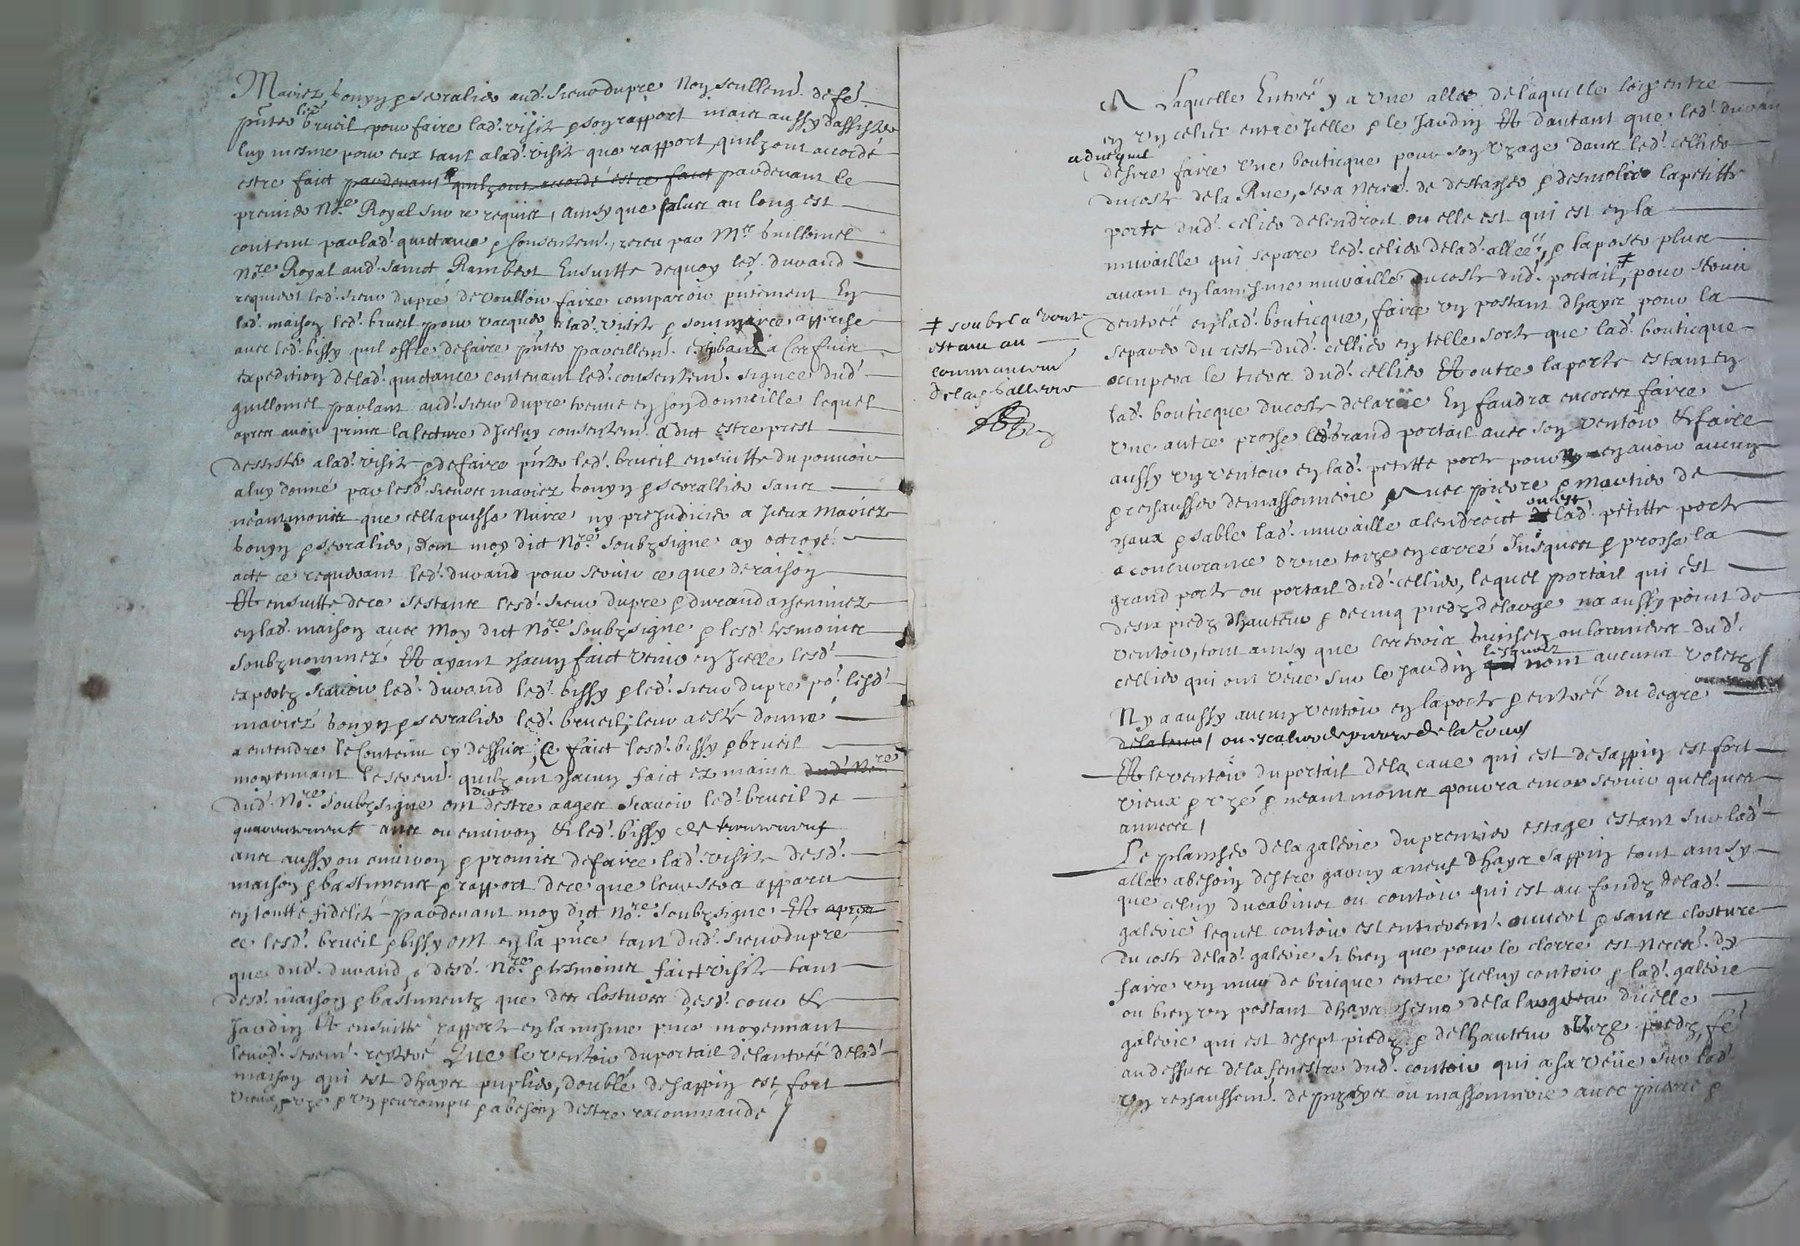 Mariez bonyn & sevralier aud. sieur dupre non seullemt. de fe.
pnter led. brueil pour faire lad. visite & son rapport mais aussy dassister
luy mesme pour eux tant a lad. visite que rapport, quilz ont accordé
estre faict pardevant quilz ont accordé estre faict pardevant le
premier Nore. Royal sur ce requis, ainsy que plus au long est
contenu par lad. quictance & consentemt., receu par Mre guillomel
Nore. Royal aud. sainct Rambert Ensuitte dequoy led. durand
requiert led. sieur dupré de voulloir faire comparoir pntement En
lad. maison led. brueil pour vacquer a lad. visite & sommaire apprise
avec led. bissy quil offre de faire pnter pareillemt.
expedition de lad. quictance contenant led. consentemt. signée dud.
guillomel parlant aud. sieur dupre trouvé en son domicille lequel
apres avoir prins la lecture dicluy consentemt. a dict estre prest
dassister a lad. visite & de faire pnter led. brueil ensuitte du pouvoir
a luy donné par lesd. sieurs mariez bonyn & sevrallier sans
néantmoins que cella puisse nuire ny prejudicier a Iceux Mariez
bonyn & sevralier, dont moy dict Nore. soubzsigne ay octroyé
acte ce requerant led. durand pour servir ce que de raison
Et ensuitte de ce sestants lesd. sieur dupre & durand acheminez
en lad. maison avec Moy dict Nore. soubzsigne & lesd. tesmoins
soubznommez Et ayant chacun faict venir en Icelle lesd.
expertz scavoir led. durand led. bissy & led. sieur dupre po. lesd.
mariez bonyn & sevralier led. brueil, leur a esté donné
a entendre le contenu cy dessus, Ce faict lesd. bissy & brueil
moyennant le seremt. quilz ont chacun faict ez mains dud. Nore.
dud. Nore. soubzsigne ont dict destre aages scavoir led. brueil de
ans ou environ & led. bissy de
ans aussy ou environ & promis de faire lad. visite desd.
maison & bastiments & rapport de ce que leur sera apparu
en toutte fidelité pardevant moy dict Nore. soubzsigne Et apres
ce lesd. brueil & bissy ont en la pnce tant dud. sieur dupre
que dud. durand, & desd. Nore. & tesmoins faict visite tant
desd. maison & bastimentz que des clostures desd. cour &
Jardin Et ensuitte rapporté en la mesme pnce moyennant
leurd. seremt. reiteré Que le ventoir du portail de lantréé de lad.
maison qui est dhays puplier, doublé de sappin est fort
vieux, & uzé & un peu rompu & a besoin destre racommandé /
A Laquelle Entréé y a une allee de laquelle lon entre
en un celier entre Icelle & le Jardin Et dautant que led. durand
a ducquel
desire faire une bouticque pour son uzage dans led. cellier
du coste de la Rue, sera necesse. de destacher & desmolir la petitte
porte dud. celier de lendroit ou elle est qui est en la
muraille qui separe led. celier de lad. alléé, & la poser plus
avant en la mesme muraille du coste dud. portail, pour servir
dentréé en lad. bouticque, faire un postant dhays pour la
separer du reste dud. cellier en telle sorte que lad. bouticque
occupera le tiers dud. cellier Et outre la porte estant en
lad. bouticque du coste de la rue En faudra encores faire
une autre proche led. grand portail avec son ventoir Et faire
aussy un ventoir en lad. petitte porte pour ny en avoir aucun
& rechausser de massonnerie Avec pierre & mortier de
chaux & sable lad. muraille a lendroict de lad. petitte porte
a concurrance dune toize en carré Jusques & proche la
grand porte ou portail dud. cellier, lequel portail qui est
de six piedz dhauteur & de cinq piedz de large na aussy point de
ventoir, tout ainsy que les trois ou larmiers dud.
cellier qui ont veue sur le Jardin lesquelz nont aucuns voletz /
Ny a aussy aucun ventoir en la porte & entréé du degre
de la tour / ou escalier de pierre de la cour /
Et le ventoir du portail de la cave qui est de sappin est fort
vieux & uzé & néantmoins pourra encor servir quelques
annees /
Le plancher de la galerie du premier estage estant sur lad.
allee a besoin destre garny a neuf dhays sappin tout ainsy
que celuy du cabinet ou contoir qui est au fondz de lad.
galerie lequel contoir est entieremt. ouvert & sans closture
du coste de lad. galerie si bien que pour le clorre est necesse. dy
faire un mur de bricque entre Iceluy contoir & lad. galerie
ou bien un postant dhays chesne de la longueur dicelle
galerie qui est de sept piedz & de lhauteur unze piedz, fe.
au dessus de la fenestre dud. contoir qui a sa veüe sur lad.
un rechaussemt. de pizays ou massonnerie avec pierre &
‡ soubz la voute
estant au
commancemt.
de lad. gallerie